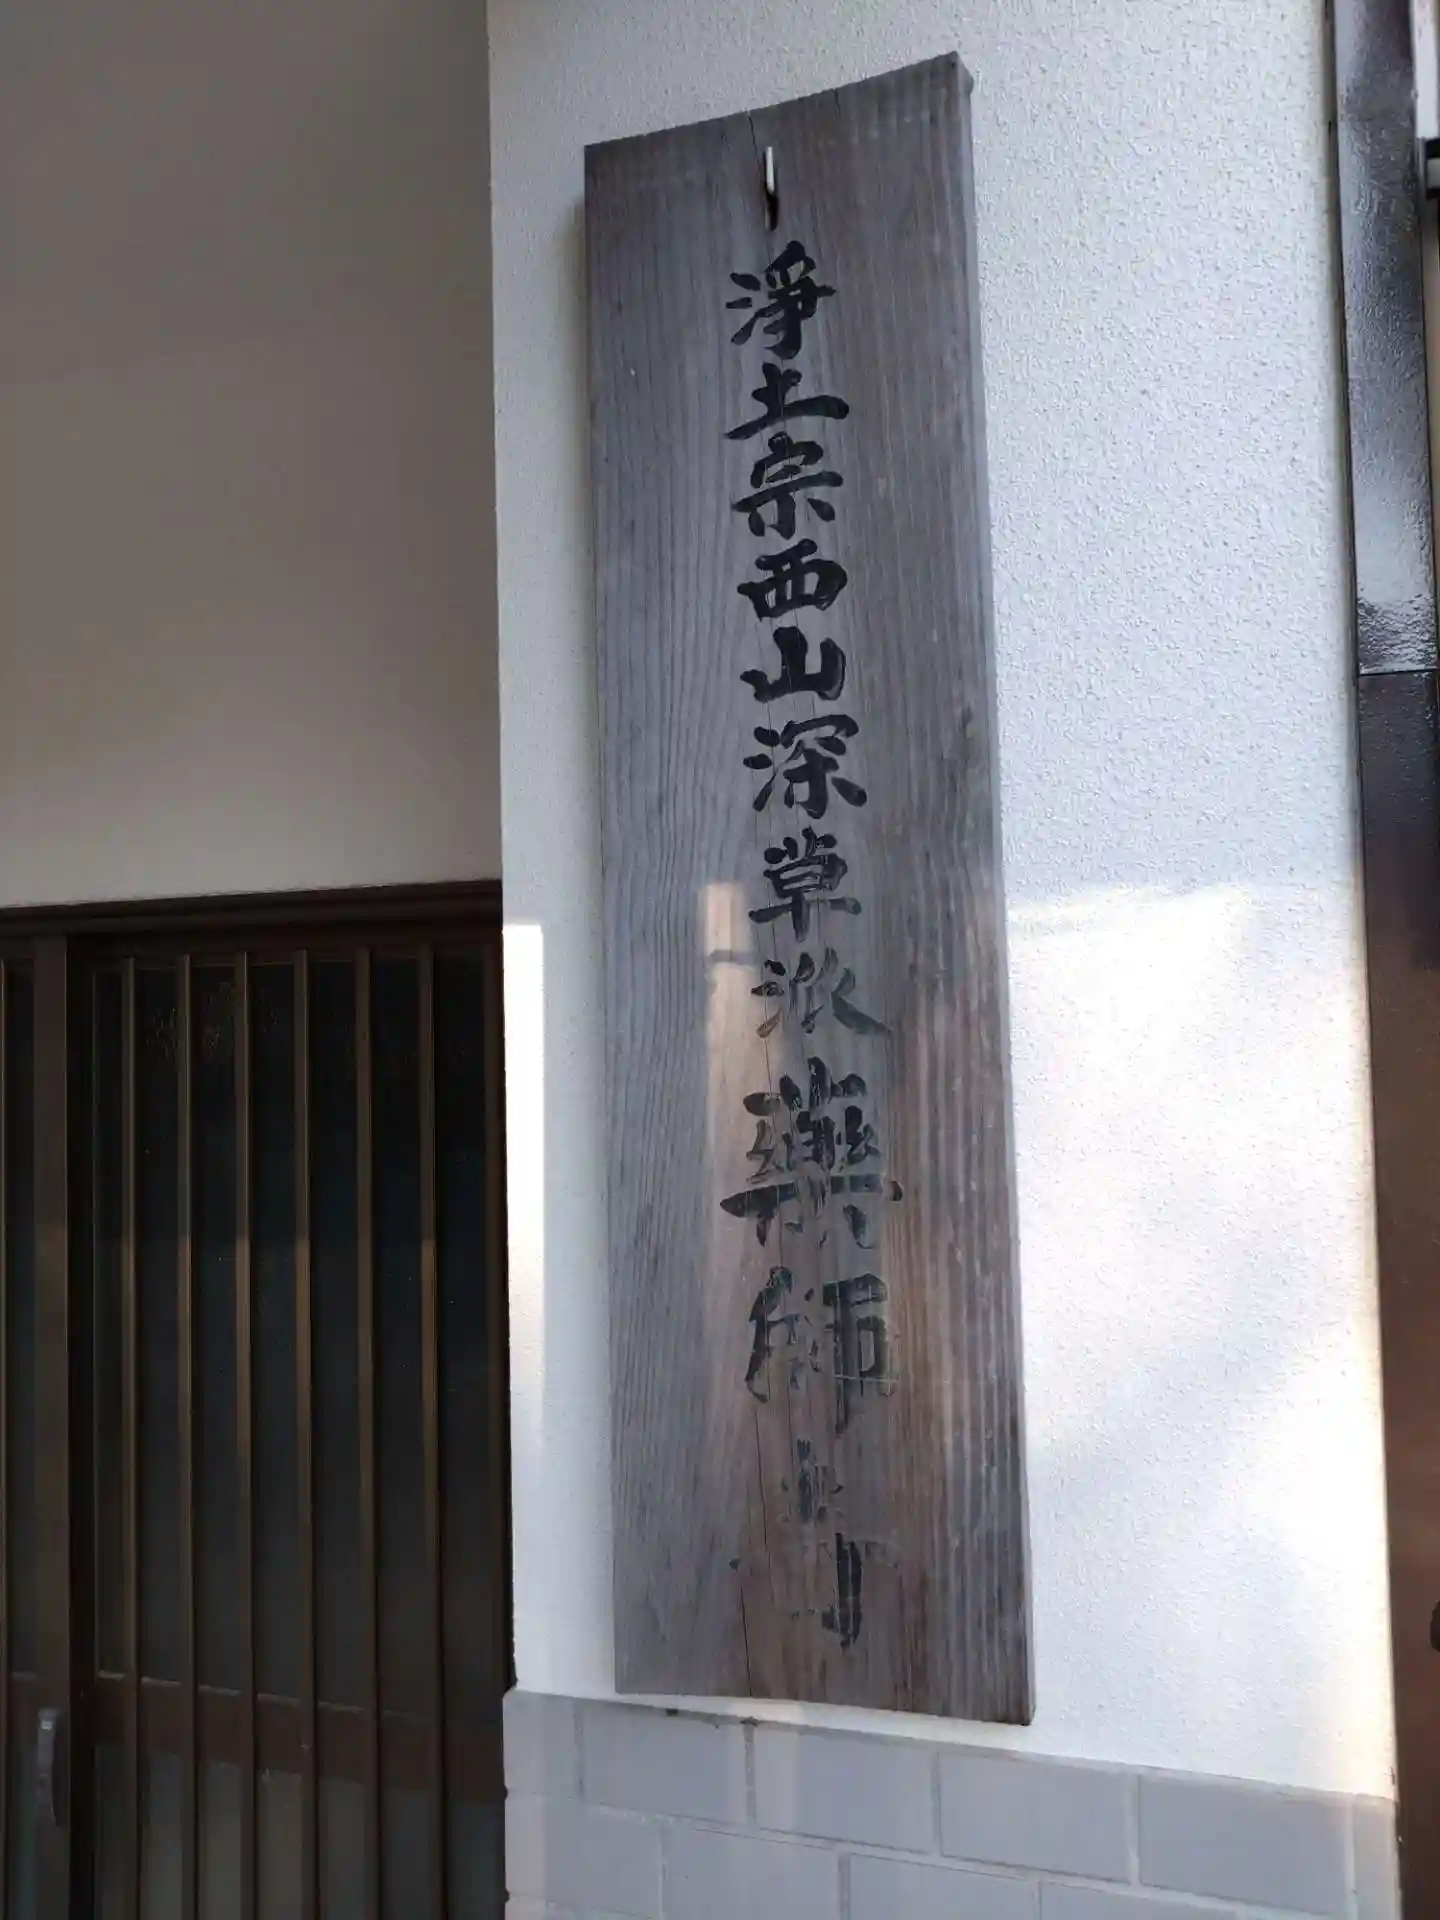 淨土宗西山深草派薬師寺